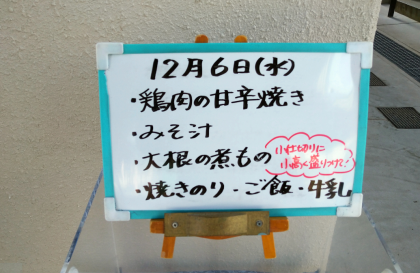 12月6日(水)
・鶏肉の甘辛焼き
・みそ汁
・大根の煮もの
小仕切りに
小高く盛りつけて!
・焼きのり・ご飯・牛乳